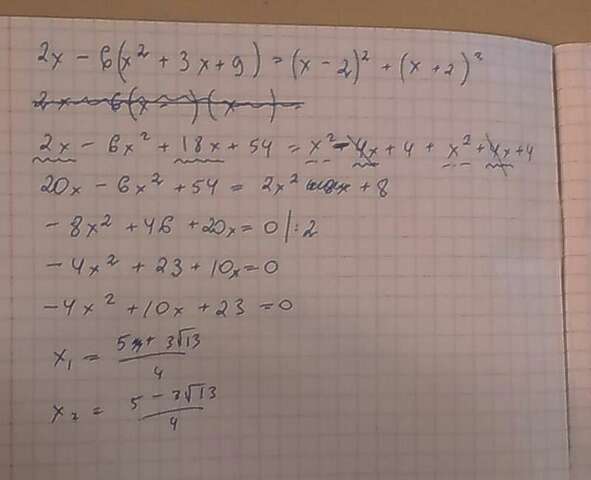 2x - 6(x² + 3x + 9) = (x - 2)² + (x + 2)²
2x - 6(x - )(x ) =
2x - 6x² + 18x + 54 = x² - 4x + 4 + x² + 4x + 4
20x - 6x² + 54 = 2x² + 8
- 8x² + 46 + 20x = 0 |:2
- 4x² + 23 + 10x = 0
- 4x² + 10x + 23 = 0
x₁ = (5 + 3√13)/4
x₂ = (5 - 3√13)/4